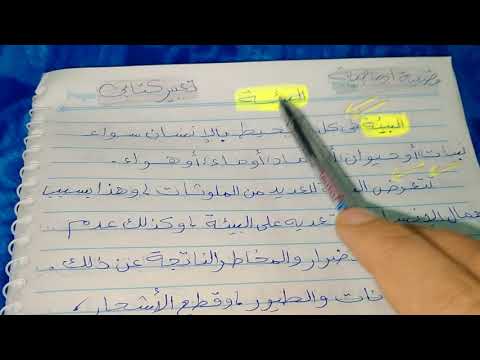 وضعية ادماجية تعبير كتابي
البيئة
البيئة هي كل يحيط بالإنسان سواء
نبات أو حيوان أو ماء أو هواء.
تتعرض العديد من الملوثات، وهذا بسبب
تعديه على البيئة، وكذلك عدم
والمخاطر الناتجة عن ذلك.
والطيور، وقطع الأشجار،